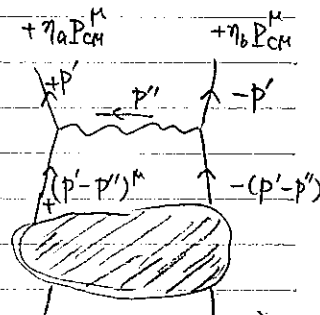 +ηₐP^μ_CM +η_bP^μ_CM
+p' p'' -p'
+(p'-p'')^μ -(p'-p'')